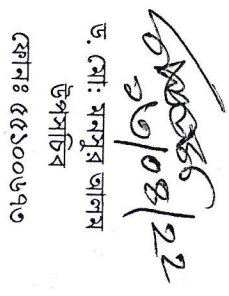 ড. মোঃ মনসুর আলম
উপসচিব
ফোনঃ ৫৫১০০৬৭৩